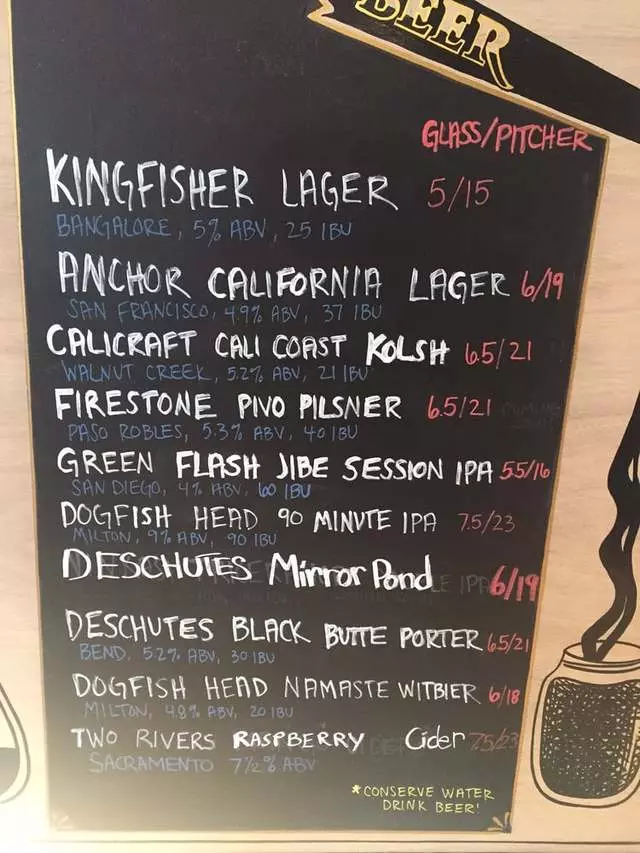 BEER
GLASS/PITCHER
KINGFISHER LAGER 5/15
BANGALORE, 5% ABV, 25 IBU
ANCHOR CALIFORNIA LAGER 6/19
SAN FRANCISCO, 4.9% ABV, 37 IBU
CALICRAFT CALI COAST KOLSH 6.5/21
WALNUT CREEK, 5.2% ABV, 21 IBU
FIRESTONE PIVO PILSNER 6.5/21
PASO ROBLES, 5.3% ABV, 40 IBU
GREEN FLASH JIBE SESSION IPA 5.5/16
SAN DIEGO, 4% ABV, 60 IBU
DOGFISH HEAD 90 MINUTE IPA 7.5/23
MILTON, 9% ABV, 90 IBU
DESCHUTES Mirror Pond 6/19
DESCHUTES BLACK BUTTE PORTER 6.5/21
BEND, 5.2% ABV, 30 IBU
DOGFISH HEAD NAMASTE WITBIER 6/18
MILTON, 4.8% ABV, 20 IBU
TWO RIVERS RASPBERRY Cider 7.5/23
SACRAMENTO 7 1/2% ABV
*CONSERVE WATER
DRINK BEER!